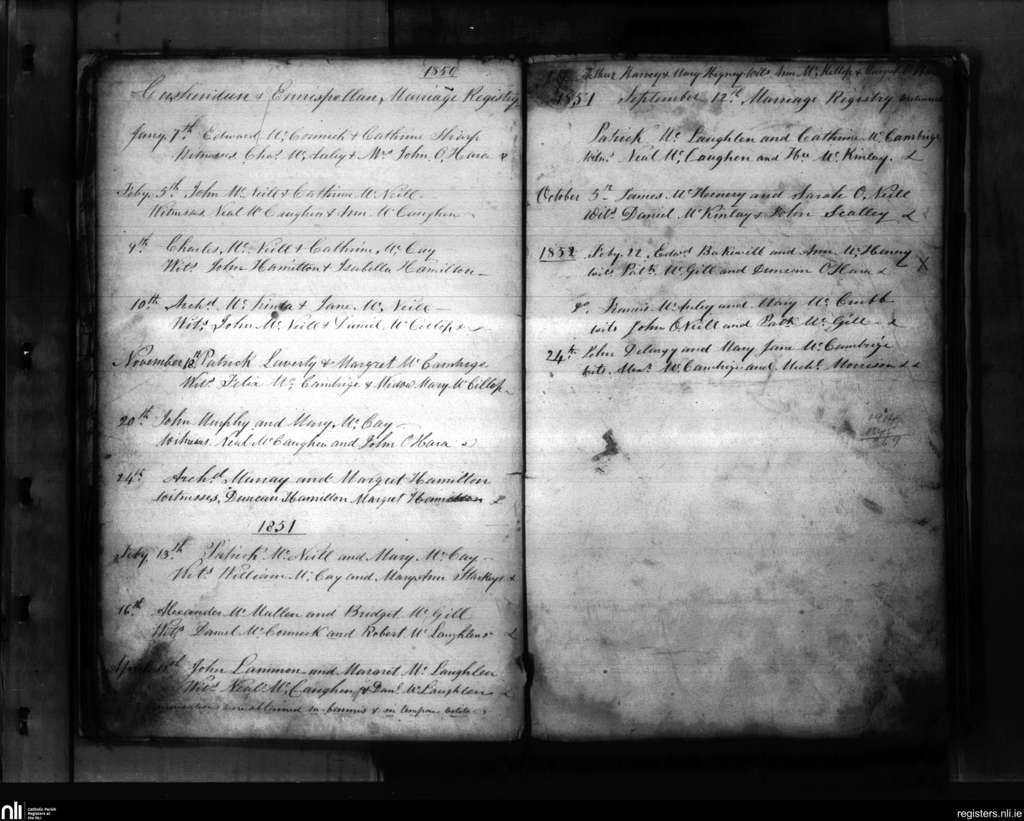 1850
Cushendun & Ennispollan, Marriage Registry
Jany. 7th Edward McCormick & Cathrine Sharp
Witnesses, Chas. McAuley & Mrs John O'Hara &
Feby. 5th John McNeill & Cathrine McNeill
Witnesses Neal McCaughen & Ann McCaughen
9th Charles, McNeill & Cathrine, McCay
Wits John Hamilton & Isabella Hamilton
10th Archd. & Jane McNeill
Wits John McNeill & Daniel McCillop
November 12th Patrick Laverty & Margret McCambrige
Wits Felix McCambrige & Widow Mary McCillop
20th John Murphy and Mary McCay
Witnesses Neal McCaughen and John O'Hara
24th Archd. Murray and Margret Hamilton
Witnesses, Duncan Hamilton Margret Hamilton &
1851
Feby. 13th Patrick McNeill and Mary McCay
Wits William McCay and Mary Ann Sharkey &
16th Alexander McMullen and Bridget McGill
Wits Daniel McCormick and Robert McLaughlen &
April John Lammon and Margret McLaughlen
Wits Neal McCaughen & Danl. McLaughlen &
in bannis & in tempore
Arthur Harvey & Mary Hegney Wits Ann McKillop &
1851 September 12th Marriage Registry continued
Patrick McLaughlen and Cathrine McCambrige
Wits Neal McCaughen and McKinlay. &
October 5th James McHenery and Sarah O'Neill
Wits Daniel McKinlay & John Scalley &
1852 Feby. 22 Edwd. Bakewill and Ann McHenry X
wits Patk. McGill and Duncan O'Hara &
do Francis McAuley and Mary McCrubb
wits John O'Neill and Patk McGill &
24th John Delargy and Mary Jane McCambrige
wits Alexr. McCambrige and Michl. Morrison &
nli
Catholic Parish
Registers at
the NLI
registers.nli.ie